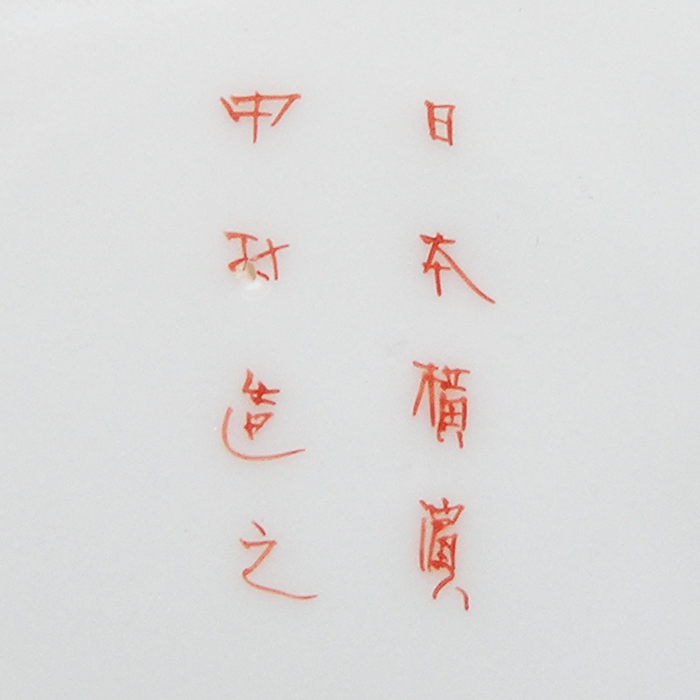 日本橫濱
中村造之